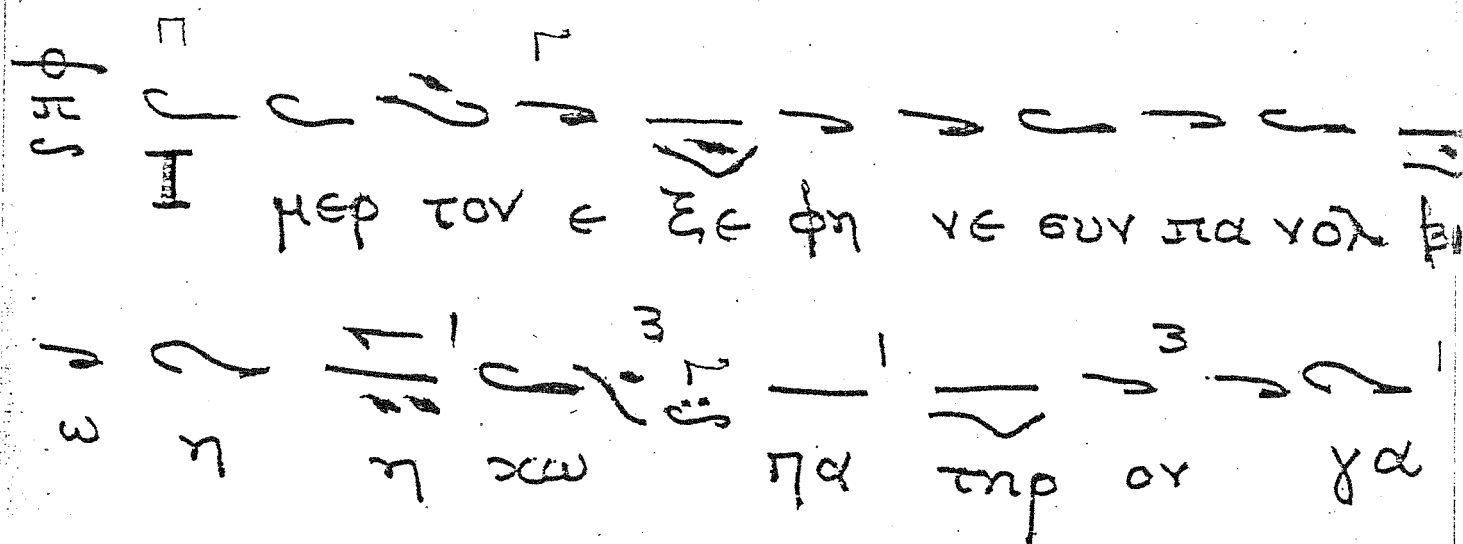 Π Γ
Ι μερ τον ε ξε φη νε συν πα νολ βι
1 3 Γ 1 3 1
ω η η χω πα τηρ ον γα